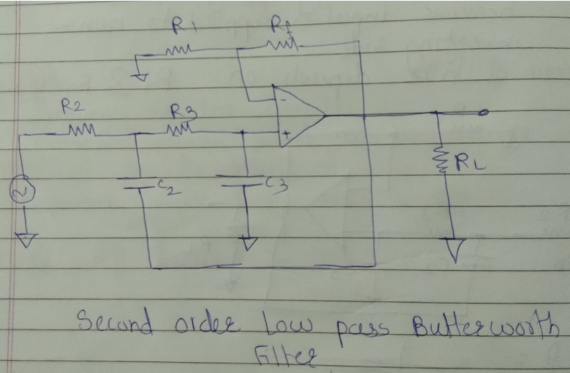 R1
Rf
R2
R3
-
+
C2
C3
RL
Second order Low pass Butterworth
Filter